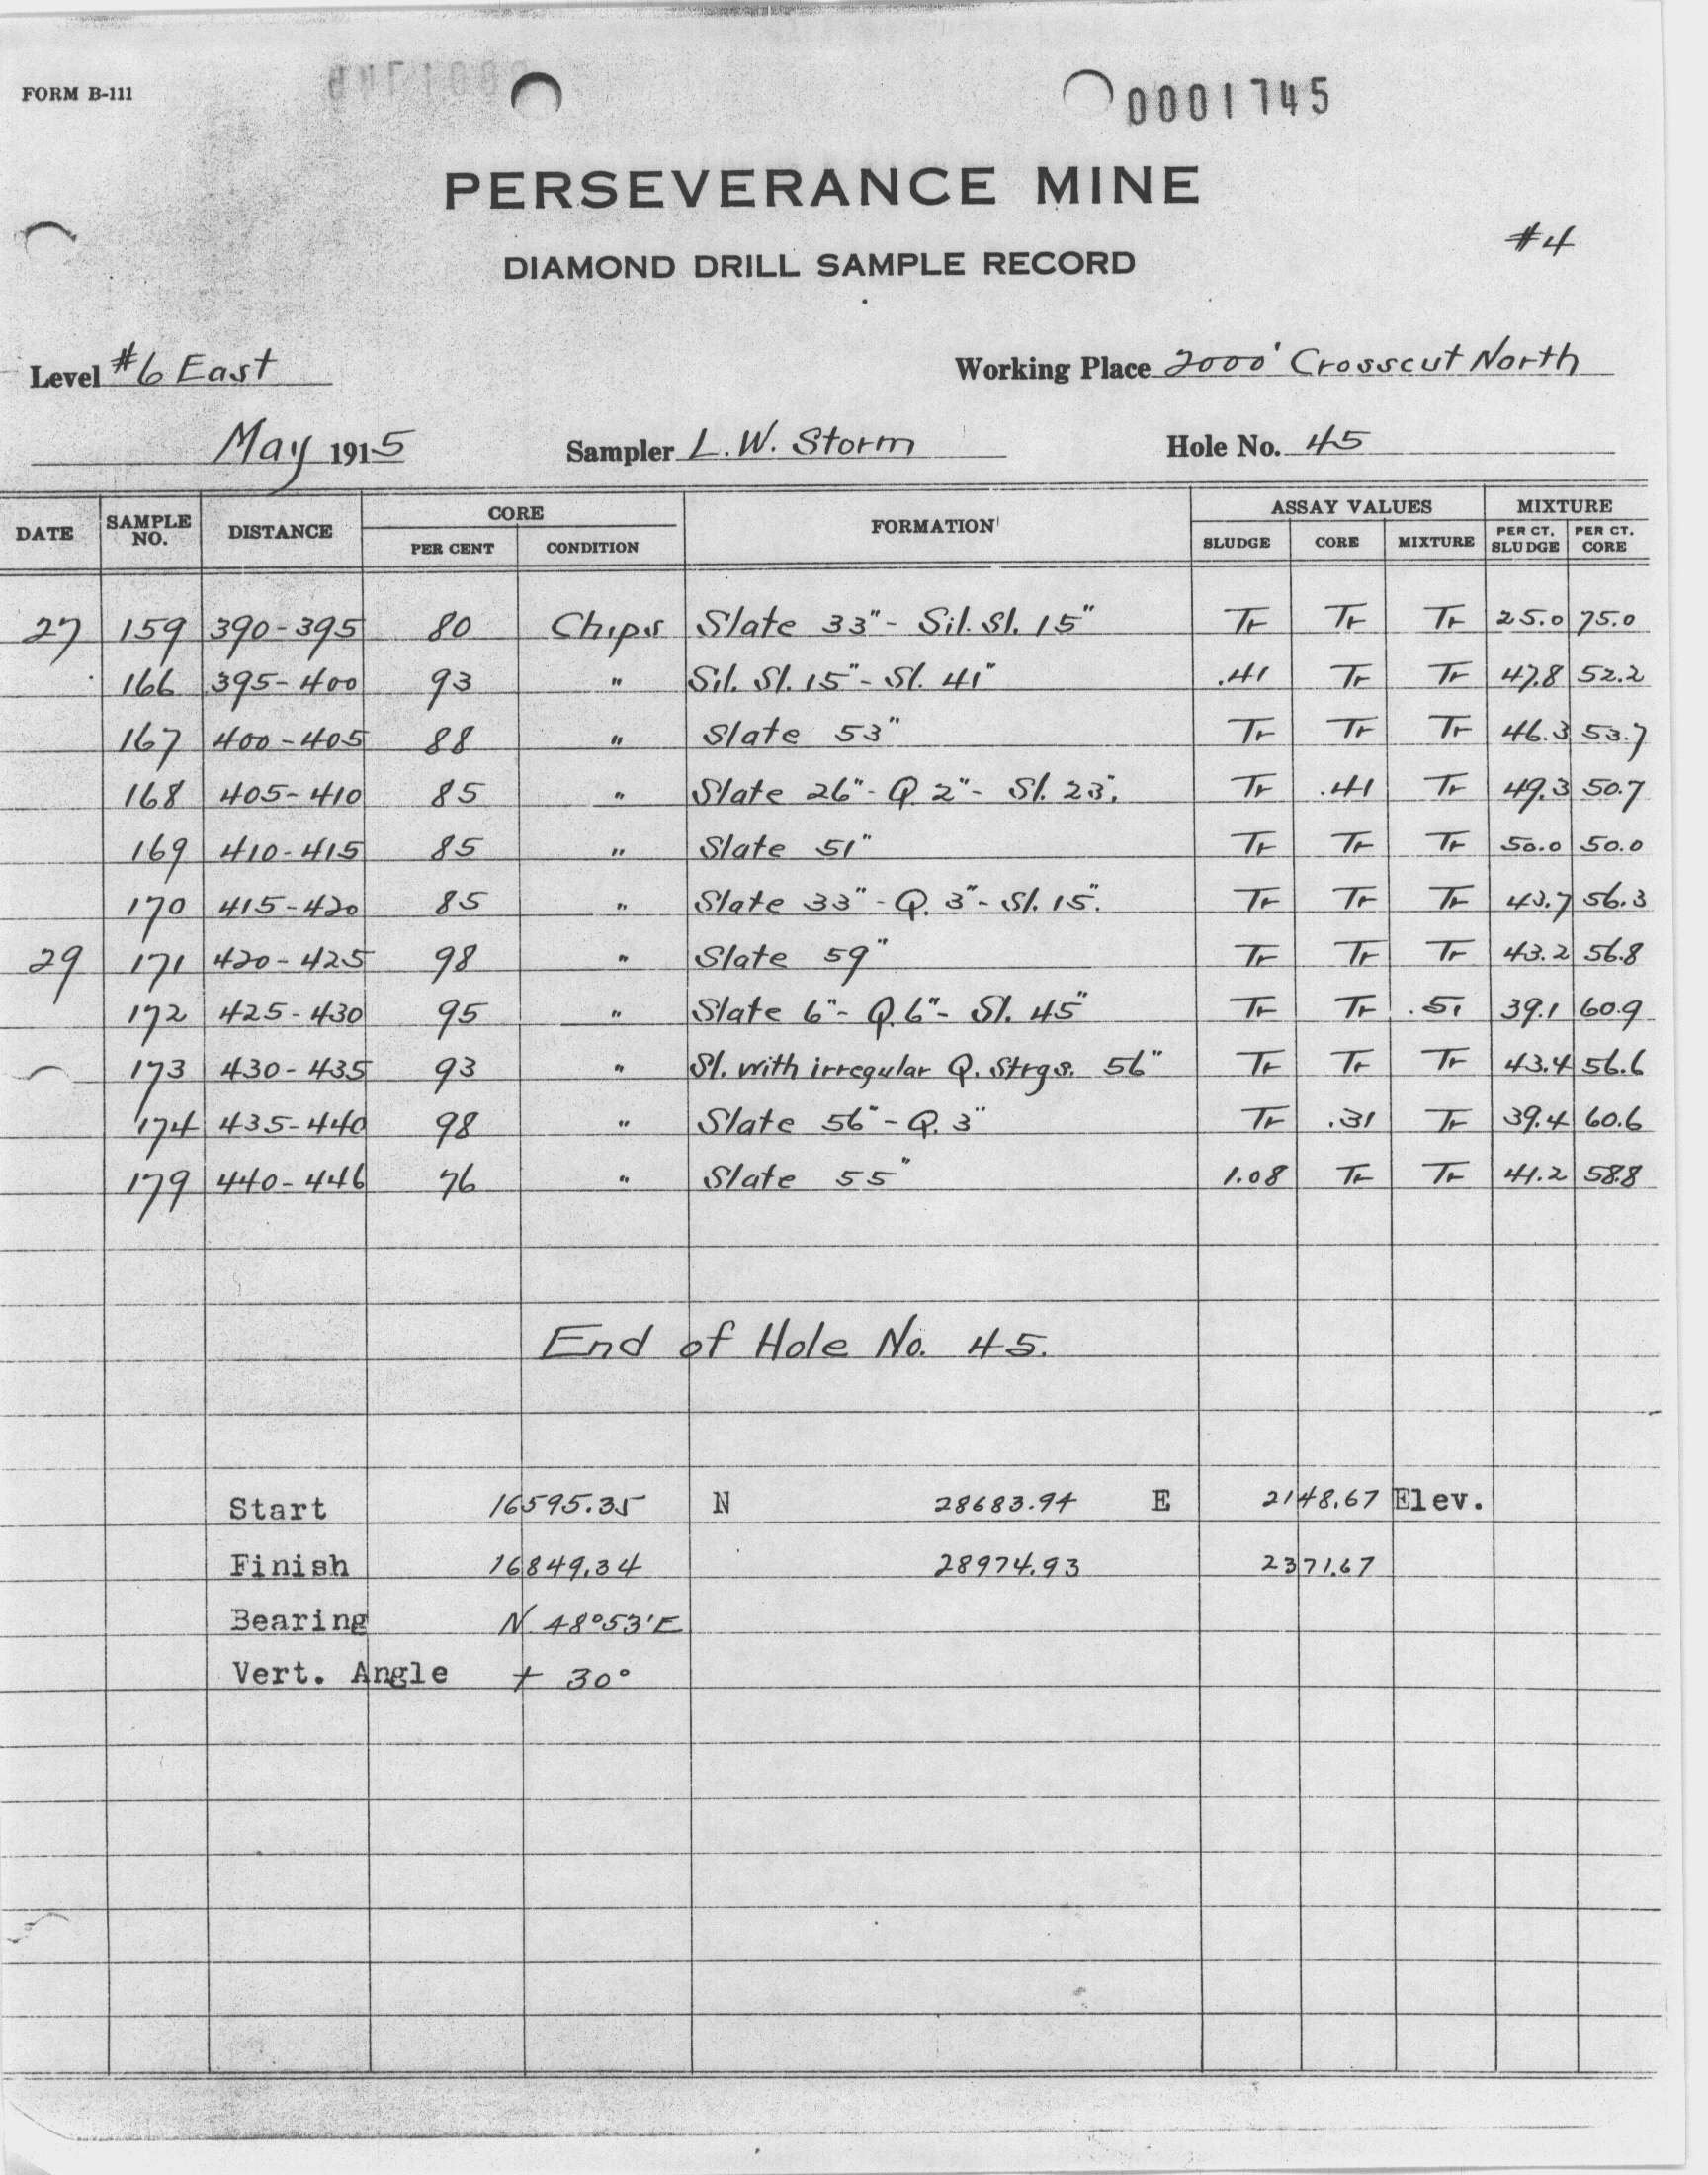 FORM B-111
0001745
PERSEVERANCE MINE
#4
DIAMOND DRILL SAMPLE RECORD
Level #6 East Working Place 2000' Crosscut North
May 1915 Sampler L. W. Storm Hole No. 45
DATE SAMPLE NO. DISTANCE CORE FORMATION ASSAY VALUES MIXTURE
PER CENT CONDITION SLUDGE CORE MIXTURE PER CT. SLUDGE PER CT. CORE
27 159 390-395 80 Chips Slate 33"- Sil. Sl. 15" Tr Tr Tr 25.0 75.0
166 395-400 93 " Sil. Sl. 15"- Sl. 41" .41 Tr Tr 47.8 52.2
167 400-405 88 " Slate 53" Tr Tr Tr 46.3 53.7
168 405-410 85 " Slate 26"- Q. 2"- Sl. 23". Tr .41 Tr 49.3 50.7
169 410-415 85 " Slate 51" Tr Tr Tr 50.0 50.0
170 415-420 85 " Slate 33"- Q. 3"- Sl. 15". Tr Tr Tr 43.7 56.3
29 171 420-425 98 " Slate 59" Tr Tr Tr 43.2 56.8
172 425-430 95 " Slate 6"- Q. 6"- Sl. 45" Tr Tr .51 39.1 60.9
173 430-435 93 " Sl. with irregular Q. Strgs. 56" Tr Tr Tr 43.4 56.6
174 435-440 98 " Slate 56"- Q. 3" Tr .31 Tr 39.4 60.6
179 440-446 76 " Slate 55" 1.08 Tr Tr 41.2 58.8
End of Hole No. 45.
Start 16595.35 N 28683.94 E 2148.67 Elev.
Finish 16849.34 28974.93 2371.67
Bearing N. 48°53'E
Vert. Angle + 30°